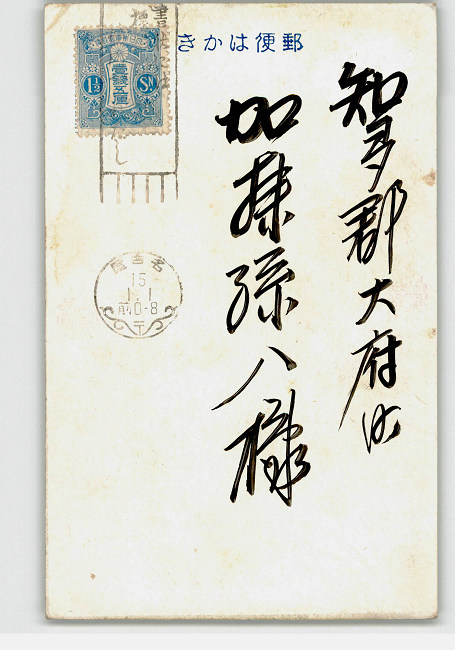 郵便はかき
知多郡大府町
加藤孫八様
壹錢五厘
1½
Sn.
名古屋
15
1.1
前0-8